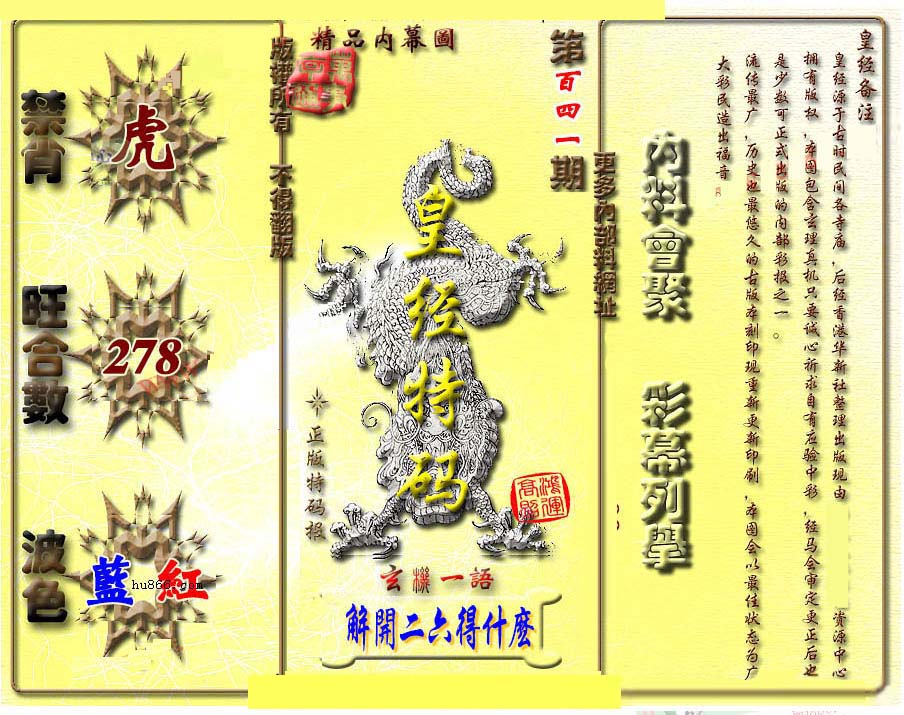 精品内幕圖
版權所有 不得翻版
第百四一期
更多內部料網址
禁肖
虎
旺合數
278
波色
藍 紅
hu866.com
皇经特码
正版特码报
鸿運高照
玄機一語
解開二六得什麽
内料會聚 彩幕列舉
皇经备注
皇经源于古时民间各寺庙，后经香港华新社整理出版现由 资源中心
拥有版权，本图包含玄理真机只要诚心祈求自有应验中彩，经马会审定更正后也
是少数可正式出版的内部彩报之一。
流传最广，历史也最悠久的古版本刻印现重新更新印刷，本图会以最佳状态为广
大彩民造出福音